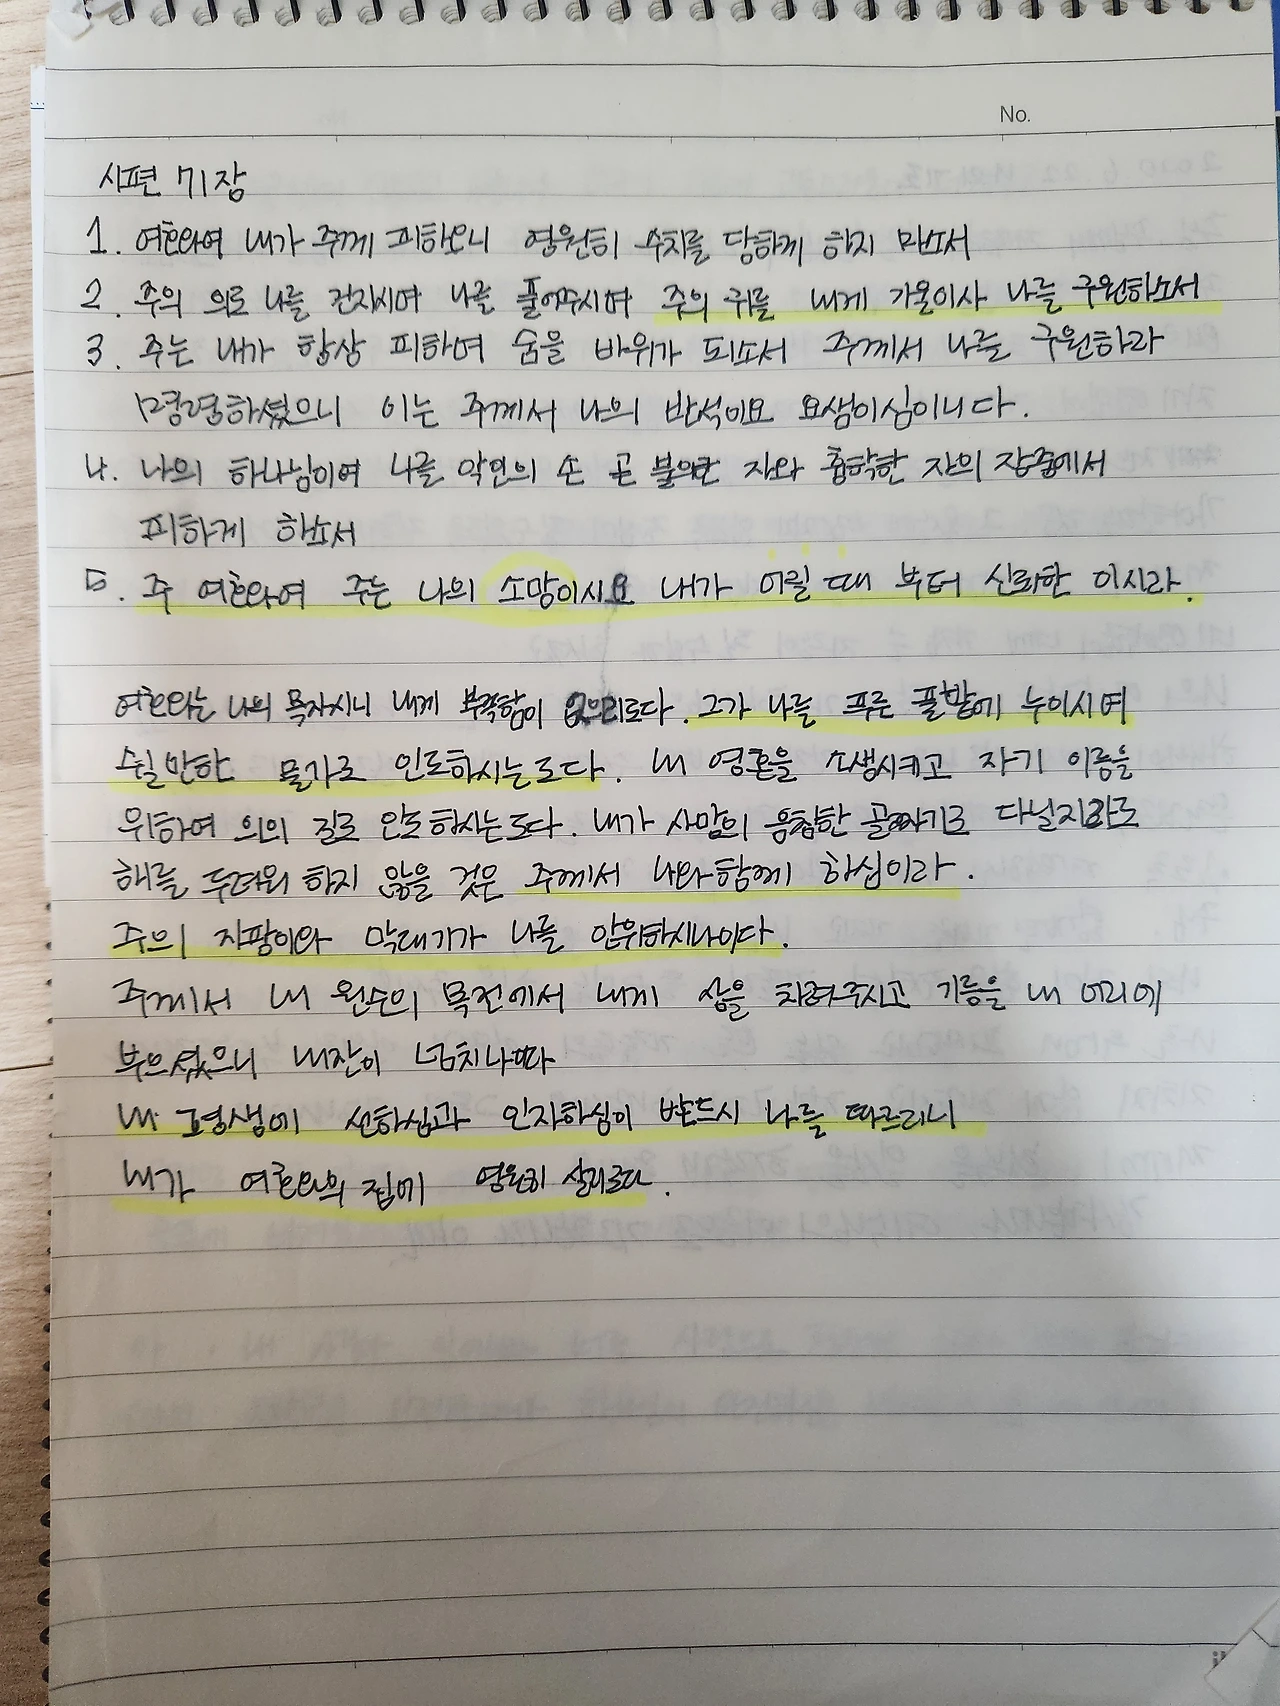 No.
시편 71장
1. 여호와여 내가 주께 피하오니 영원히 수치를 당하게 하지 마소서
2. 주의 의로 나를 건지시며 나를 풀어주시며 주의 귀를 내게 기울이사 나를 구원하소서
3. 주는 내가 항상 피하여 숨을 바위가 되소서 주께서 나를 구원하라
명령하셨으니 이는 주께서 나의 반석이요 요새이심이니다.
4. 나의 하나님이여 나를 악인의 손 곧 불의한 자와 흉악한 자의 장중에서
피하게 하소서
5. 주 여호와여 주는 나의 소망이시요 내가 어릴 때 부터 신뢰한 이시라.
여호와는 나의 목자시니 내게 부족함이 없으리로다. 그가 나를 푸른 풀밭에 누이시며
쉴만한 물가로 인도하시는도다. 내 영혼을 소생시키고 자기 이름을
위하여 의의 길로 인도하시는도다. 내가 사망의 음침한 골짜기로 다닐지라도
해를 두려워 하지 않을 것은 주께서 나와함께 하심이라.
주의 지팡이와 막대기가 나를 안위하시나이다.
주께서 내 원수의 목전에서 내게 상을 차려주시고 기름을 내 머리에
부으셨으니 내잔이 넘치나이다
내 평생에 선하심과 인자하심이 반드시 나를 따르리니
내가 여호와의 집에 영원히 살리로다.